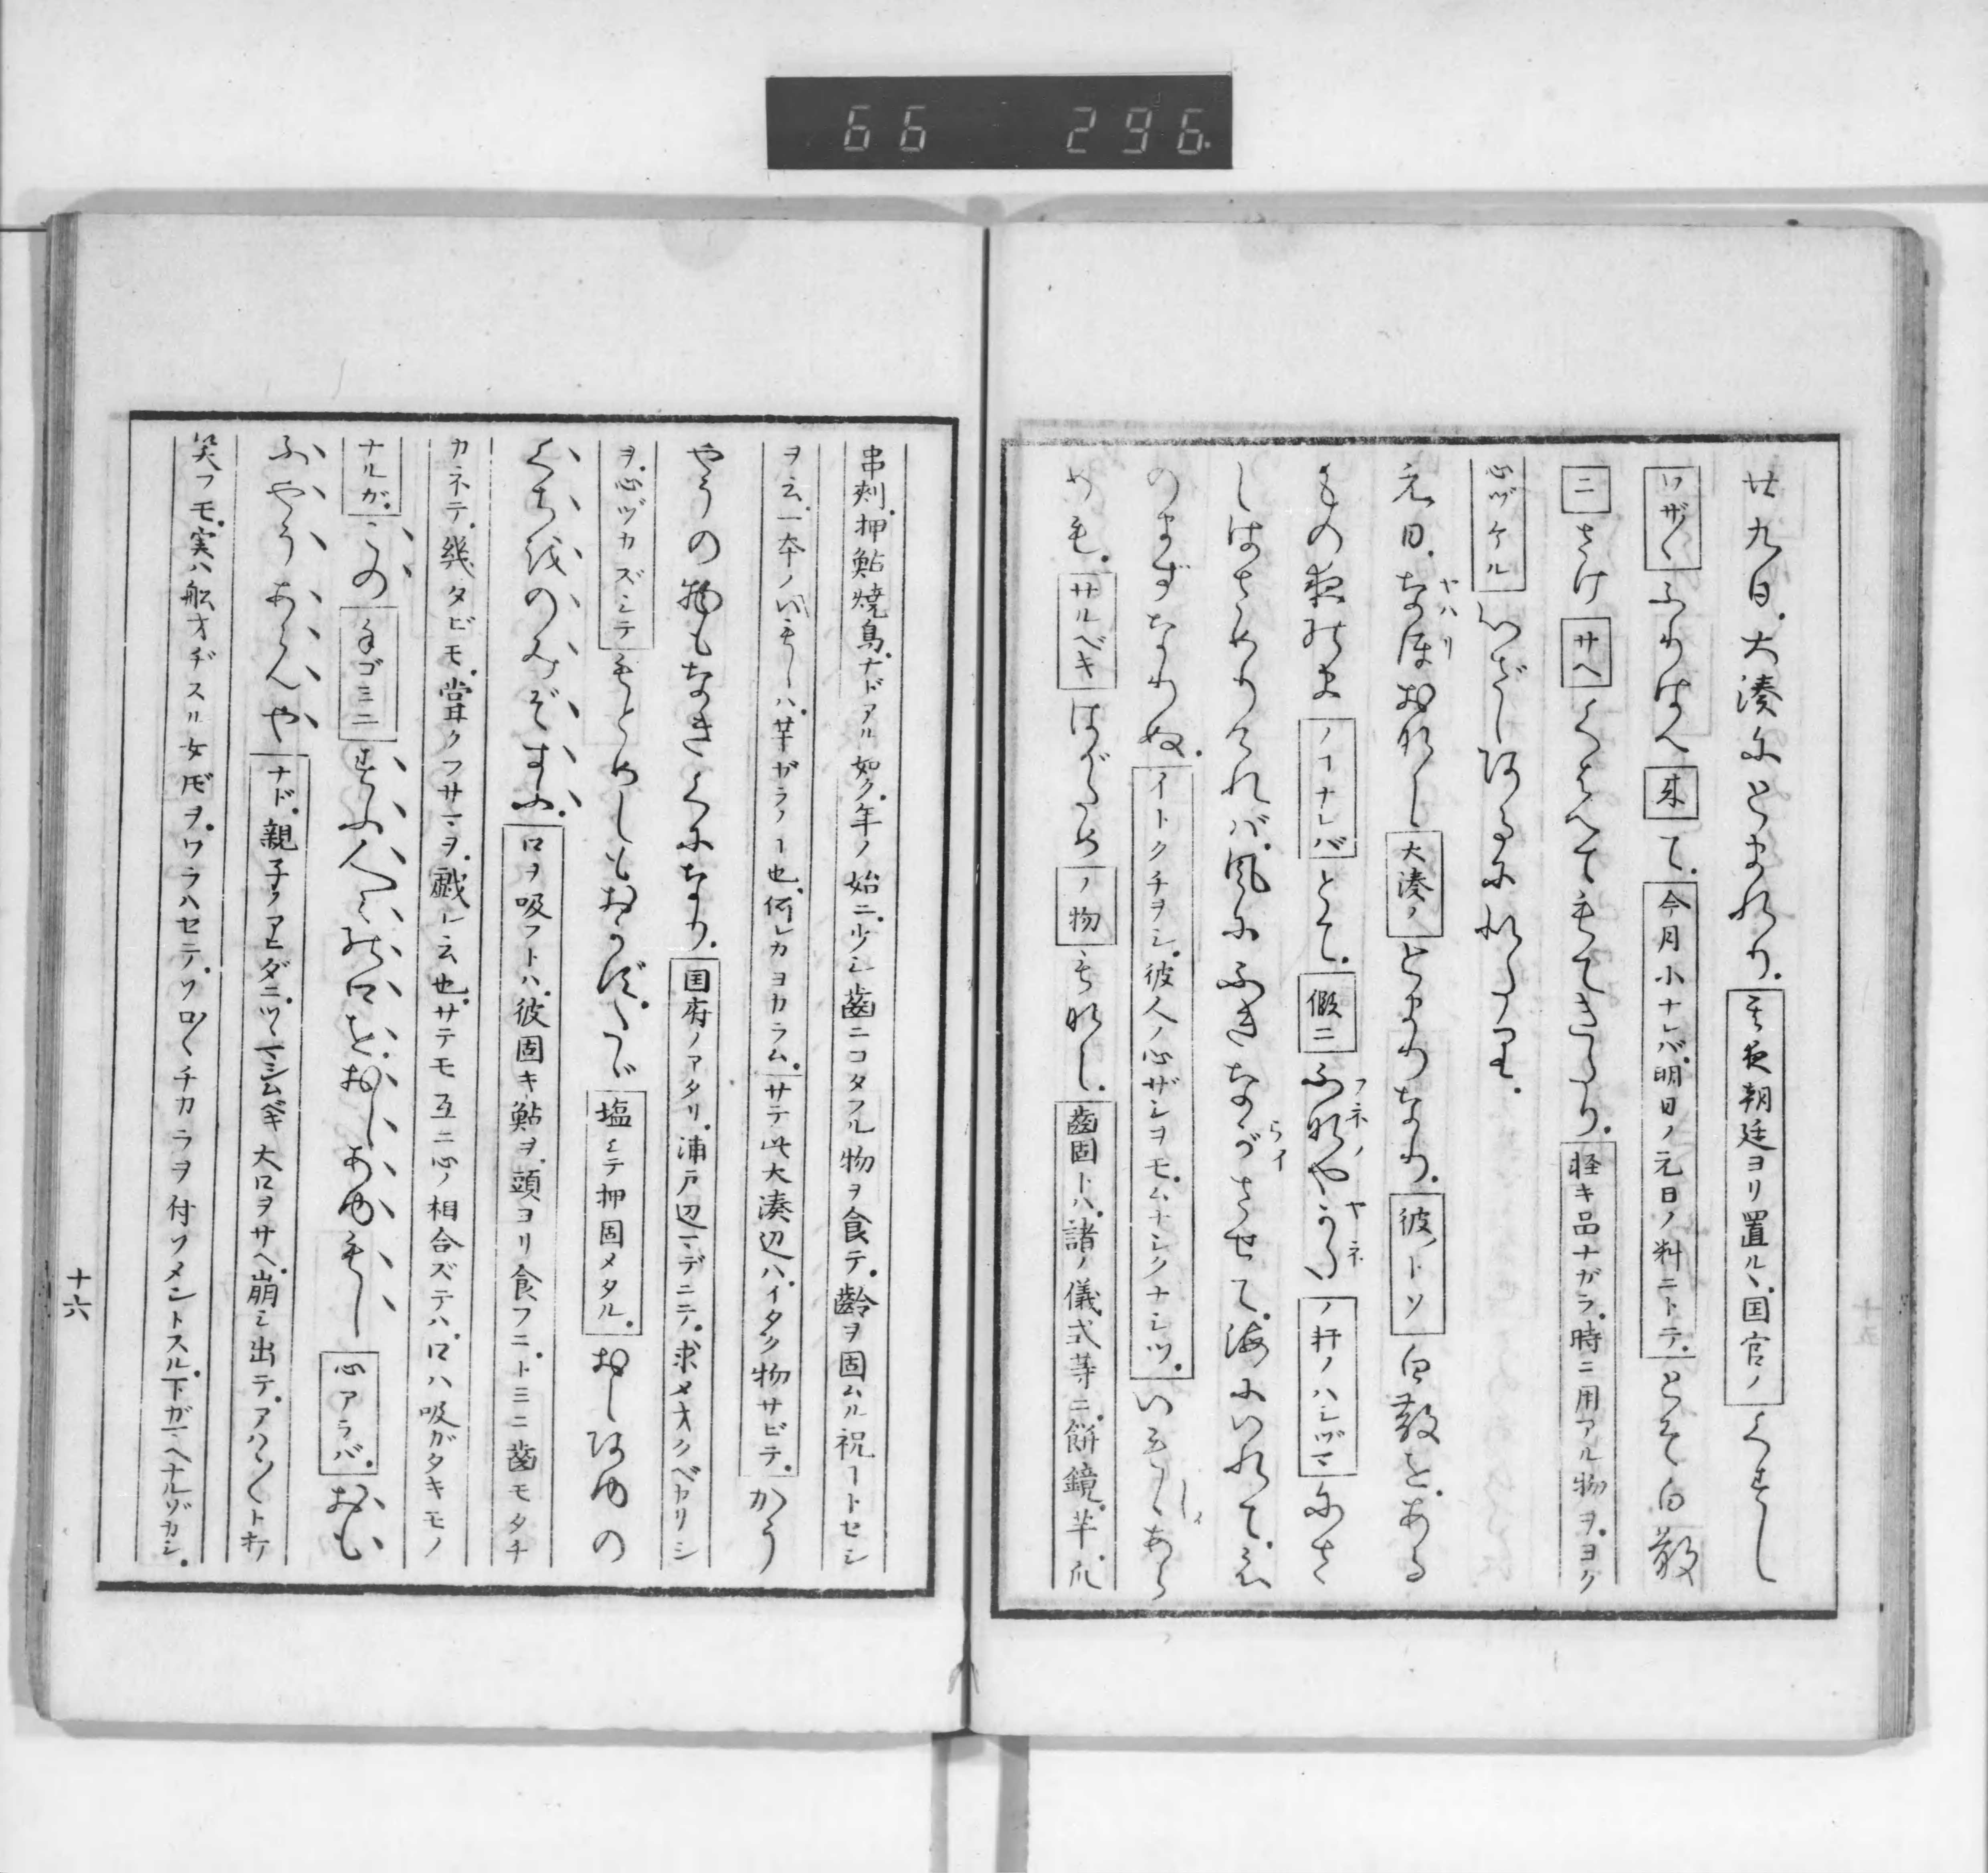 66 296
廿九日。大湊にとまれり。其夜朝廷ヨリ置ルヽ国官ノくすし
ワザ〱ふりはへ来て。今月小ナレバ。明日ノ元日ノ料ニトテ。とそ白散
ニさけサヘくはへてもてきたり。軽キ品ナガラ。時ニ用アル物ヲ。ヨク
心ヅケルこゝろざしあるににたり。
元日。なほおなじ大湊ノとまりなり。彼ノトソ白散を。ある
もの夜のまノ丅ナレバとて。假ニふなやかたノ軒ノハシヅマにさ
しはさめりければ。風にふきながさせて。海にいれて。え
のまずなりぬ。イトクチヲシ。彼人ノ心ザシヲモ。ムナシクナシツ。いもしあら
めも。サルベキはがためノ物もなし。齒固トハ。諸ノ儀式等ニ。餅鏡。芋爪。
串刺。押鮎焼鳥。ナドアル如ク。年ノ始ニ。少シ齒ニコタフル物ヲ食テ。齡ヲ固ムル祝丅トセシ
ヲ云。一本ノいもしハ。芋ガラノ丅也。何レカヨカラム。サテ此大湊辺ハ。イタク物サビテ。かう
やうの物もなきくになり。国府ノアタリ。浦戸辺マデニテ。求メオクベカリシ
ヲ。心ヅカズシテもとめしもおかず。たゞ塩シテ押固メタル。おしあゆの
くちをのみぞすふ。口ヲ吸フトハ。彼固キ鮎ヲ。頭ヨリ食フニ。トミニ齒モタチ
カネテ。幾タビモ。嘗クフサマヲ。戯レ云也。サテモ互ニ心ノ相合ズテハ。口ハ吸ガタキモノ
ナルガ。このすふ人〲の口を。おしあゆもし心アラバ。おも
ふやうあらんやナド。親子ノアヒダニ。ツヽマシムベキ大口ヲサヘ。崩シ出テ。アハ〱ト打
笑フモ。実ハ船オヂスル女モヲ。ワラハセテ。ソロ〱チカラヲ付ソメントスル。下ガマヘナルゾカシ。
十六